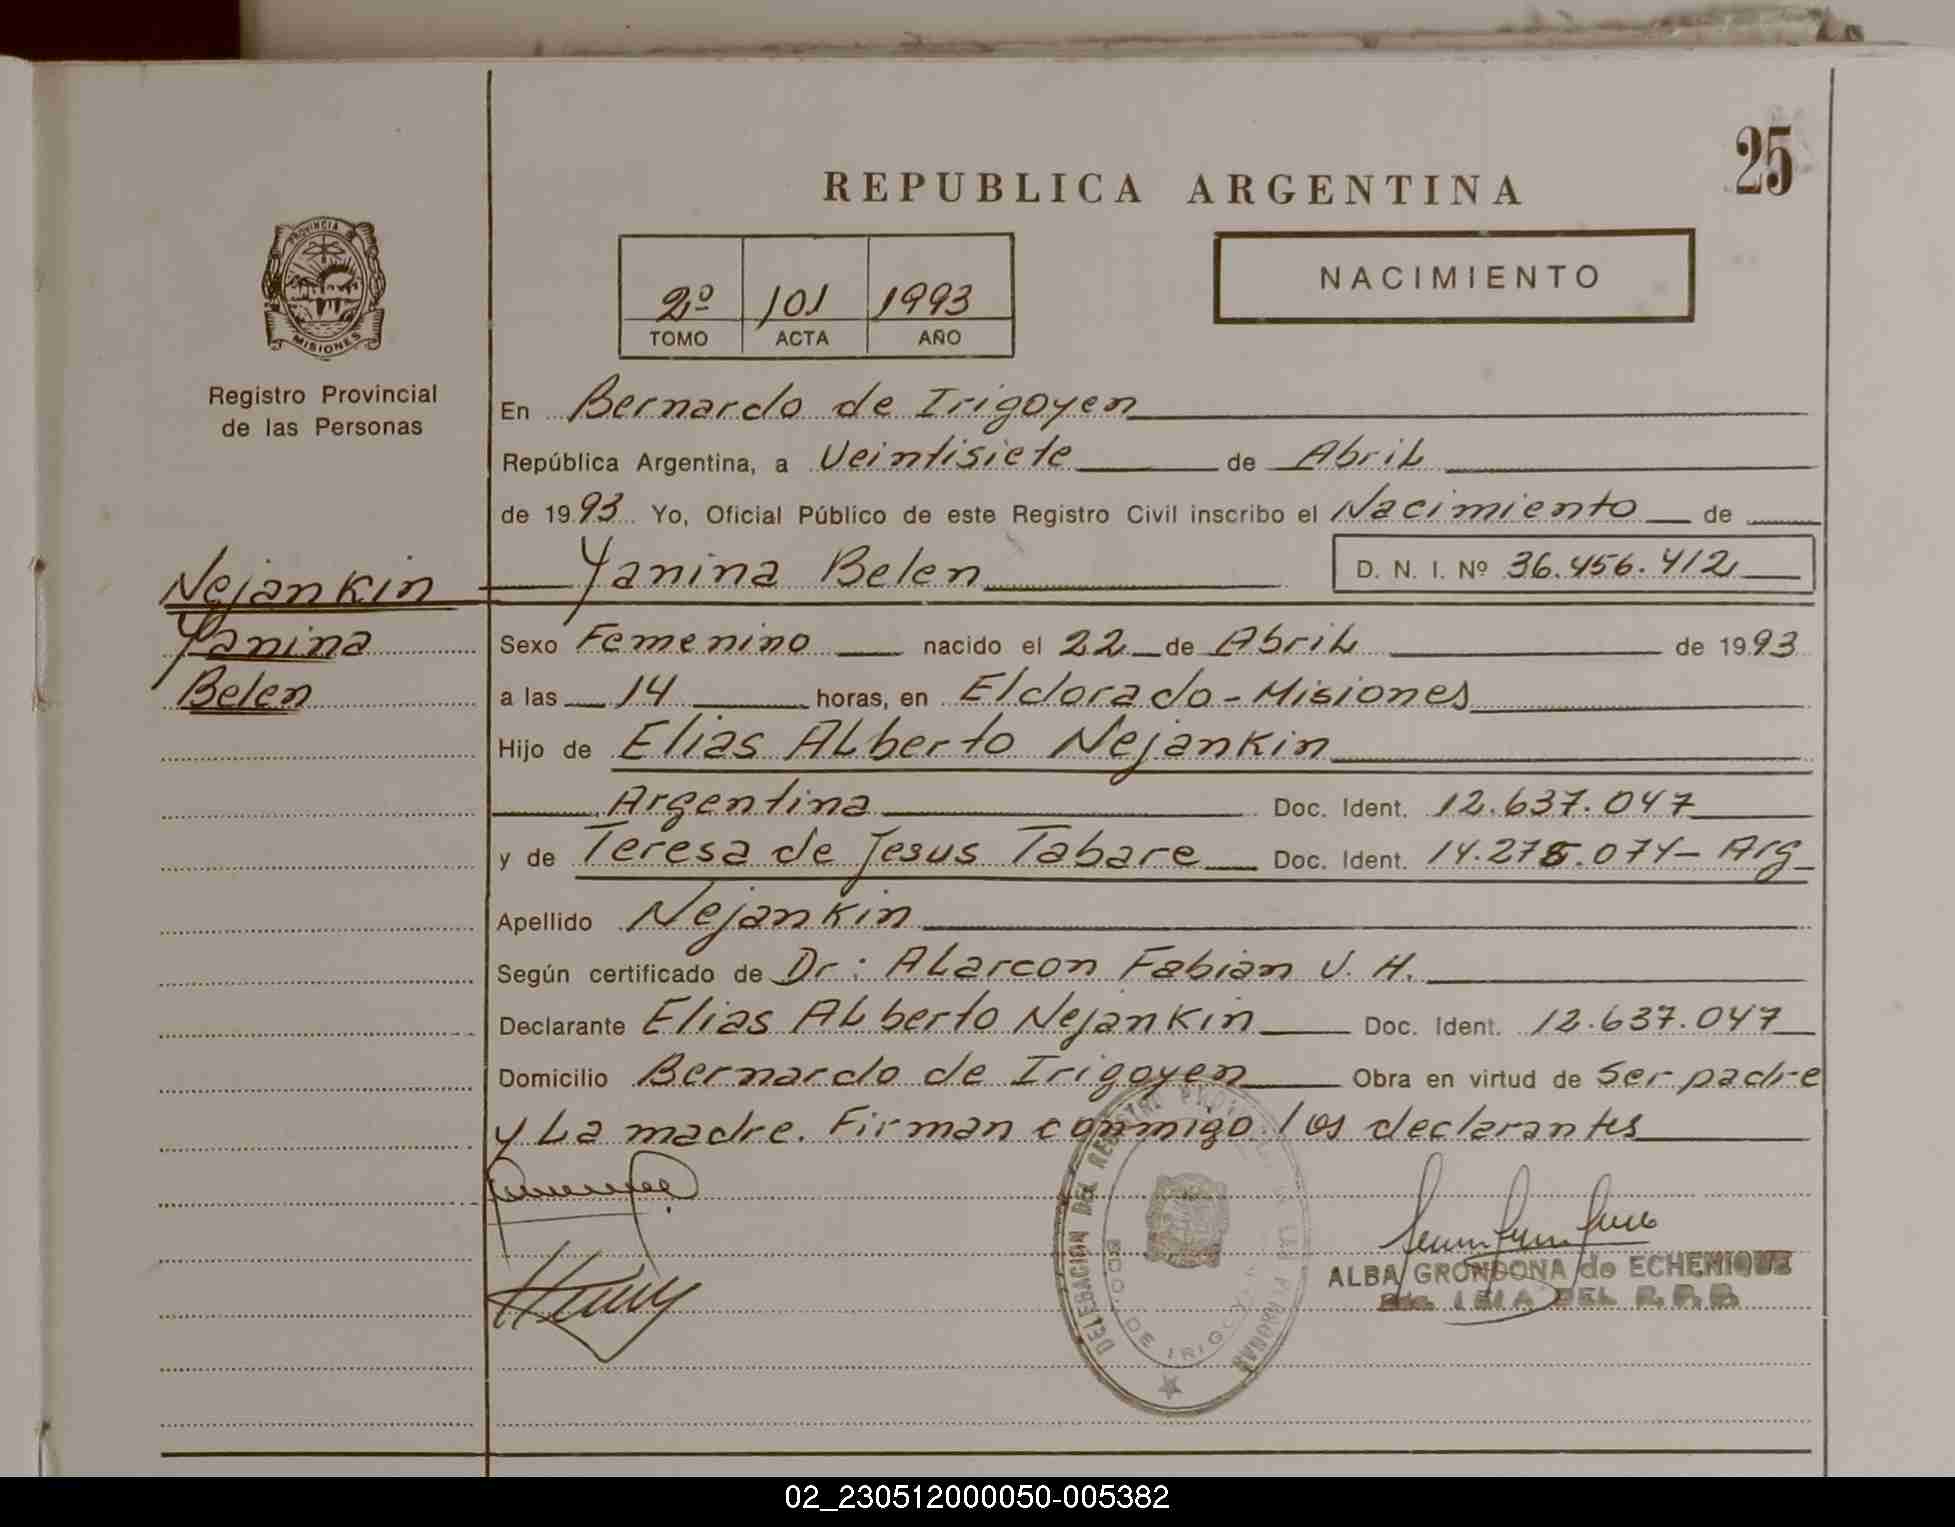 25
REPUBLICA ARGENTINA
PROVINCIA DE
MISIONES
Registro Provincial
de las Personas
2º 101 1993
TOMO ACTA AÑO
NACIMIENTO
En Bernardo de Irigoyen
República Argentina, a Veintisiete de Abril
de 1993 Yo, Oficial Público de este Registro Civil inscribo el Nacimiento de
Yanina Belen D. N. I. Nº 36.456.412
Nejankin
Yanina
Belen
Sexo Femenino nacido el 22 de Abril de 1993
a las 14 horas, en Eldorado - Misiones
Hijo de Elias Alberto Nejankin
Argentina Doc. Ident. 12.637.047
y de Teresa de Jesus Tabare Doc. Ident. 14.275.074 - Arg
Apellido Nejankin
Según certificado de Dr: Alarcon Fabian V. H.
Declarante Elias Alberto Nejankin Doc. Ident. 12.637.047
Domicilio Bernardo de Irigoyen Obra en virtud de Ser padre
y La madre. Firman conmigo los declarantes
DELEGACION DEL REGISTRO PROVINCIAL DE LAS PERSONAS
BDO. DE IRIGOYEN
ALBA GRONDONA de ECHENIQUE
DEL R. P. P.
02_230512000050-005382